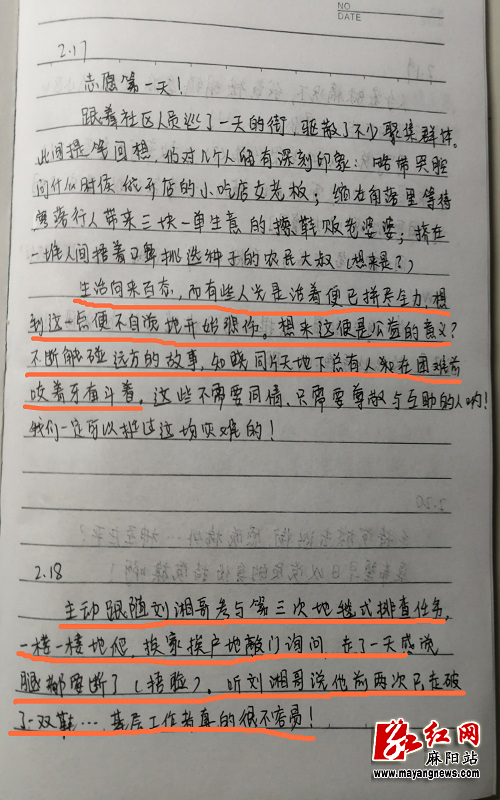 NO
DATE
2.17
志愿第一天！
跟着社区人员巡了一天的街，驱散了不少聚集群体。
此间提笔回想，仍对几个人留有深刻印象：略带哭腔
问什么时候能开店的小吃店女老板；缩在角落里等待
零落行人带来三块一单生意的擦鞋贩老婆婆；挤在
一堆人间捂着口鼻挑选种子的农民大叔（想来是？）
生活向来百态，而有些人光是活着便已拼尽全力，想
到这一点便不自觉地开始 。想来这便是公益的意义？
不断触碰远方的故事，知晓同片天地下总有人犹在困难前
咬着牙奋斗着。这些不需要同情，只需要尊敬与互助的人哟！
我们一定可以挺过这场灾难的！
2.18
主动跟随刘湘哥参与第三次地毯式排查任务，
一楼一楼地爬，挨家挨户地敲门询问，走了一天感觉
腿都要断了（捂脸），听刘湘哥说他前两次已走破
了一双鞋…基层工作者真的很不容易！
红网
麻阳站
www.mayangnews.com